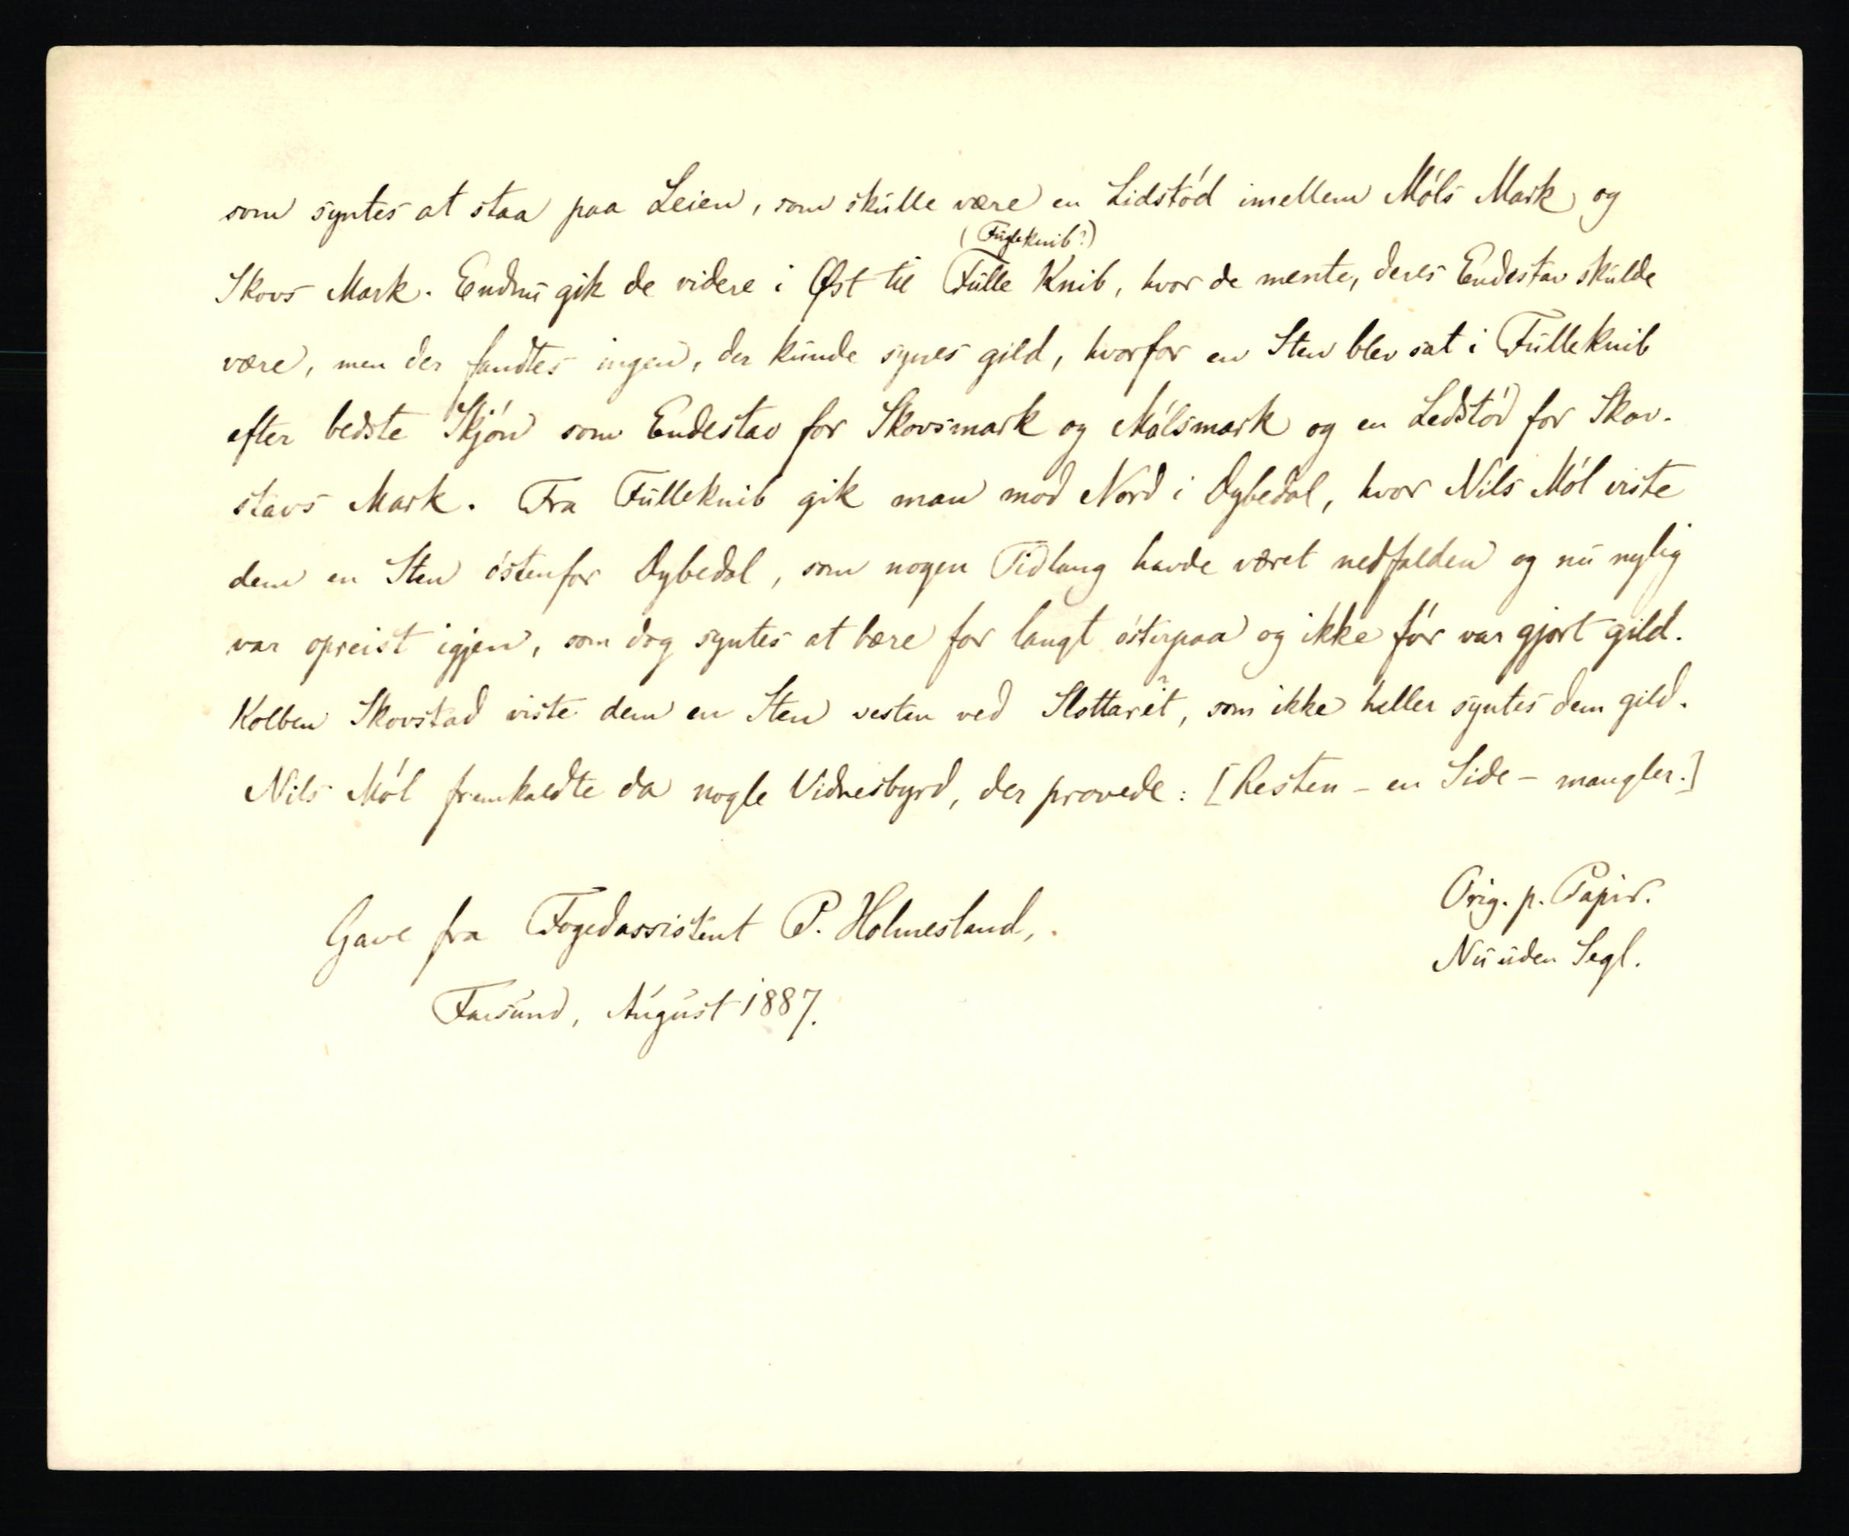 som syntes at staa paa Leien, som skulle være en Lidstód imellem Móls Mark og
(Fugleknib?)
Skovs Mark. Endnu gik de videre i Øst til Fulle Knib, hvor de mente, deres Endestav skulde
være, men der fandtes ingen, der kunde synes gild, hvorfor en Sten blev sat i Fulleknib
efter bedste Skjón som Endestav for Skovsmark og Mólsmark og en Ledstód for Skov-
stavs Mark. Fra Fulleknib gik man mod Nord i Dybedal, hvor Nils Mól viste
dem en Sten óstenfor Dybedal, som nogen Tidlang havde været nedfalden og nu nylig
var opreist igjen, som dog syntes at bære for langtósterpaa og ikke fór var gjort gild.
Kolben Skovstad viste dem en Sten vesten ved Slottaret, som ikke heller syntes dem gild.
Nils Mól fremkaldte da nogle Vidnesbyrd, der provede: [Resten – en Side – mangler.]
Orig. p. Papir.
Nu uden Segl.
Gave fra Fogedassistent P. Holmesland,
Farsund, August 1887.